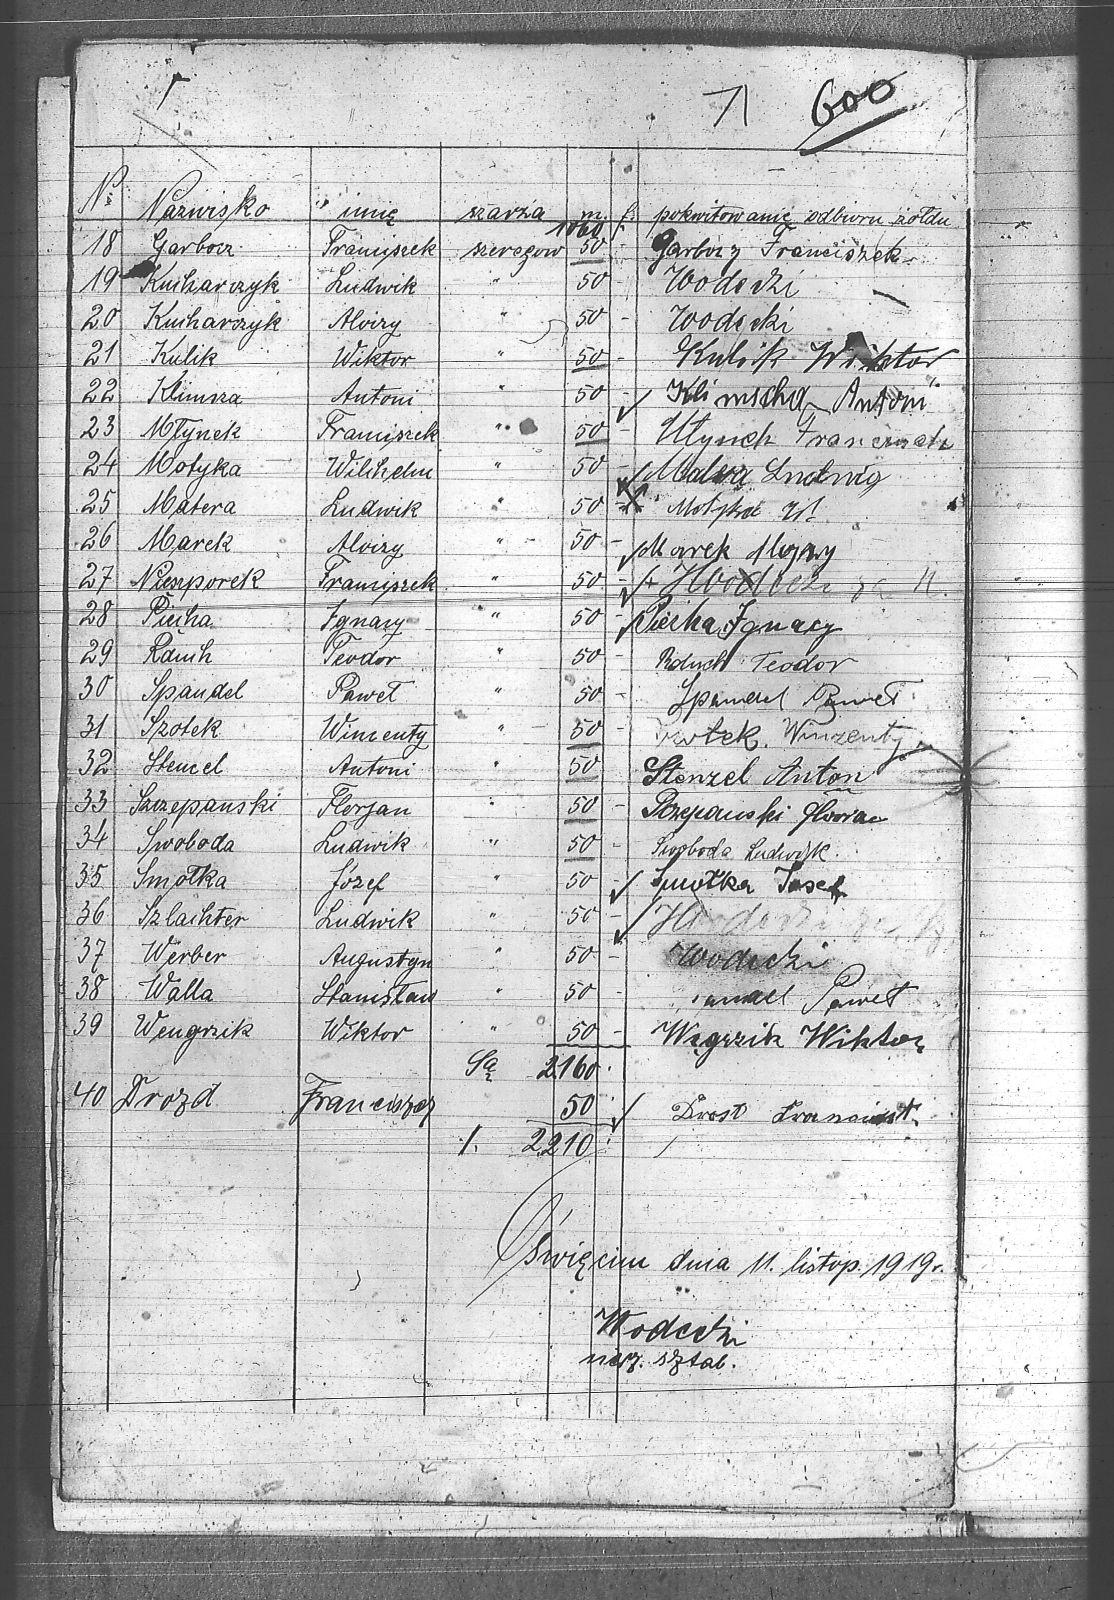 71 600
Nr Nazwisko imię szarża m. f. pokwitowanie odbioru żołdu
1060
18 Garbocz Franciszek szeregow 50 - Garbocz Franciszek
19 Kucharczyk Ludwik " 50 - Wodecki
20 Kucharczyk Alojzy " 50 - Wodecki
21 Kulik Wiktor " 50 - Kulik Wiktor
22 Klimsza Antoni " 50 - Klimscha Anton
23 Młynek Franciszek " 50 -
24 Motyka Wilchelm " 50 - Ludwig
25 Matera Ludwik " 50 - Motyka
26 Marek Alojzy " 50 - Marek
27 Nieszporek Franciszek " 50 - Wodecki za N.
28 Piecha Ignacy " 50 - Piecha Ignacy
29 Rduch Teodor " 50 - Rduch Teodor
30 Spandel Paweł " 50 - Spandel Paweł
31 Szotek Wincenty " 50 - Szotek Winzenty
32 Stencel Antoni " 50 - Stenzel Anton
33 Szczepanski Florjan " 50 -
34 Swoboda Ludwik " 50 - Swoboda Ludwik
35 Smołka Józef " 50 - Smołka Josef
36 Szlachter Ludwik " 50 - Wodecki za
37 Werber Augustyn " 50 - Wodecki
38 Walla Stanisław " 50 - Paweł
39 Wengrzik Wiktor " 50 - Węgrzik Wiktor
Sa 2160.
40 Drozd Franciszek 50 Drost
/. 2210
Oświęcim dnia 11. listop. 1919r.
Wodecki
sztab.